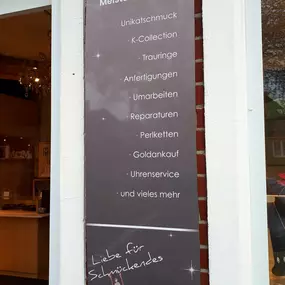 Meiste
Unikatschmuck
· K-Collection
· Trauringe
· Anfertigungen
· Umarbeiten
· Reparaturen
· Perlketten
· Goldankauf
· Uhrenservice
· und vieles mehr
Liebe für
Schmückendes